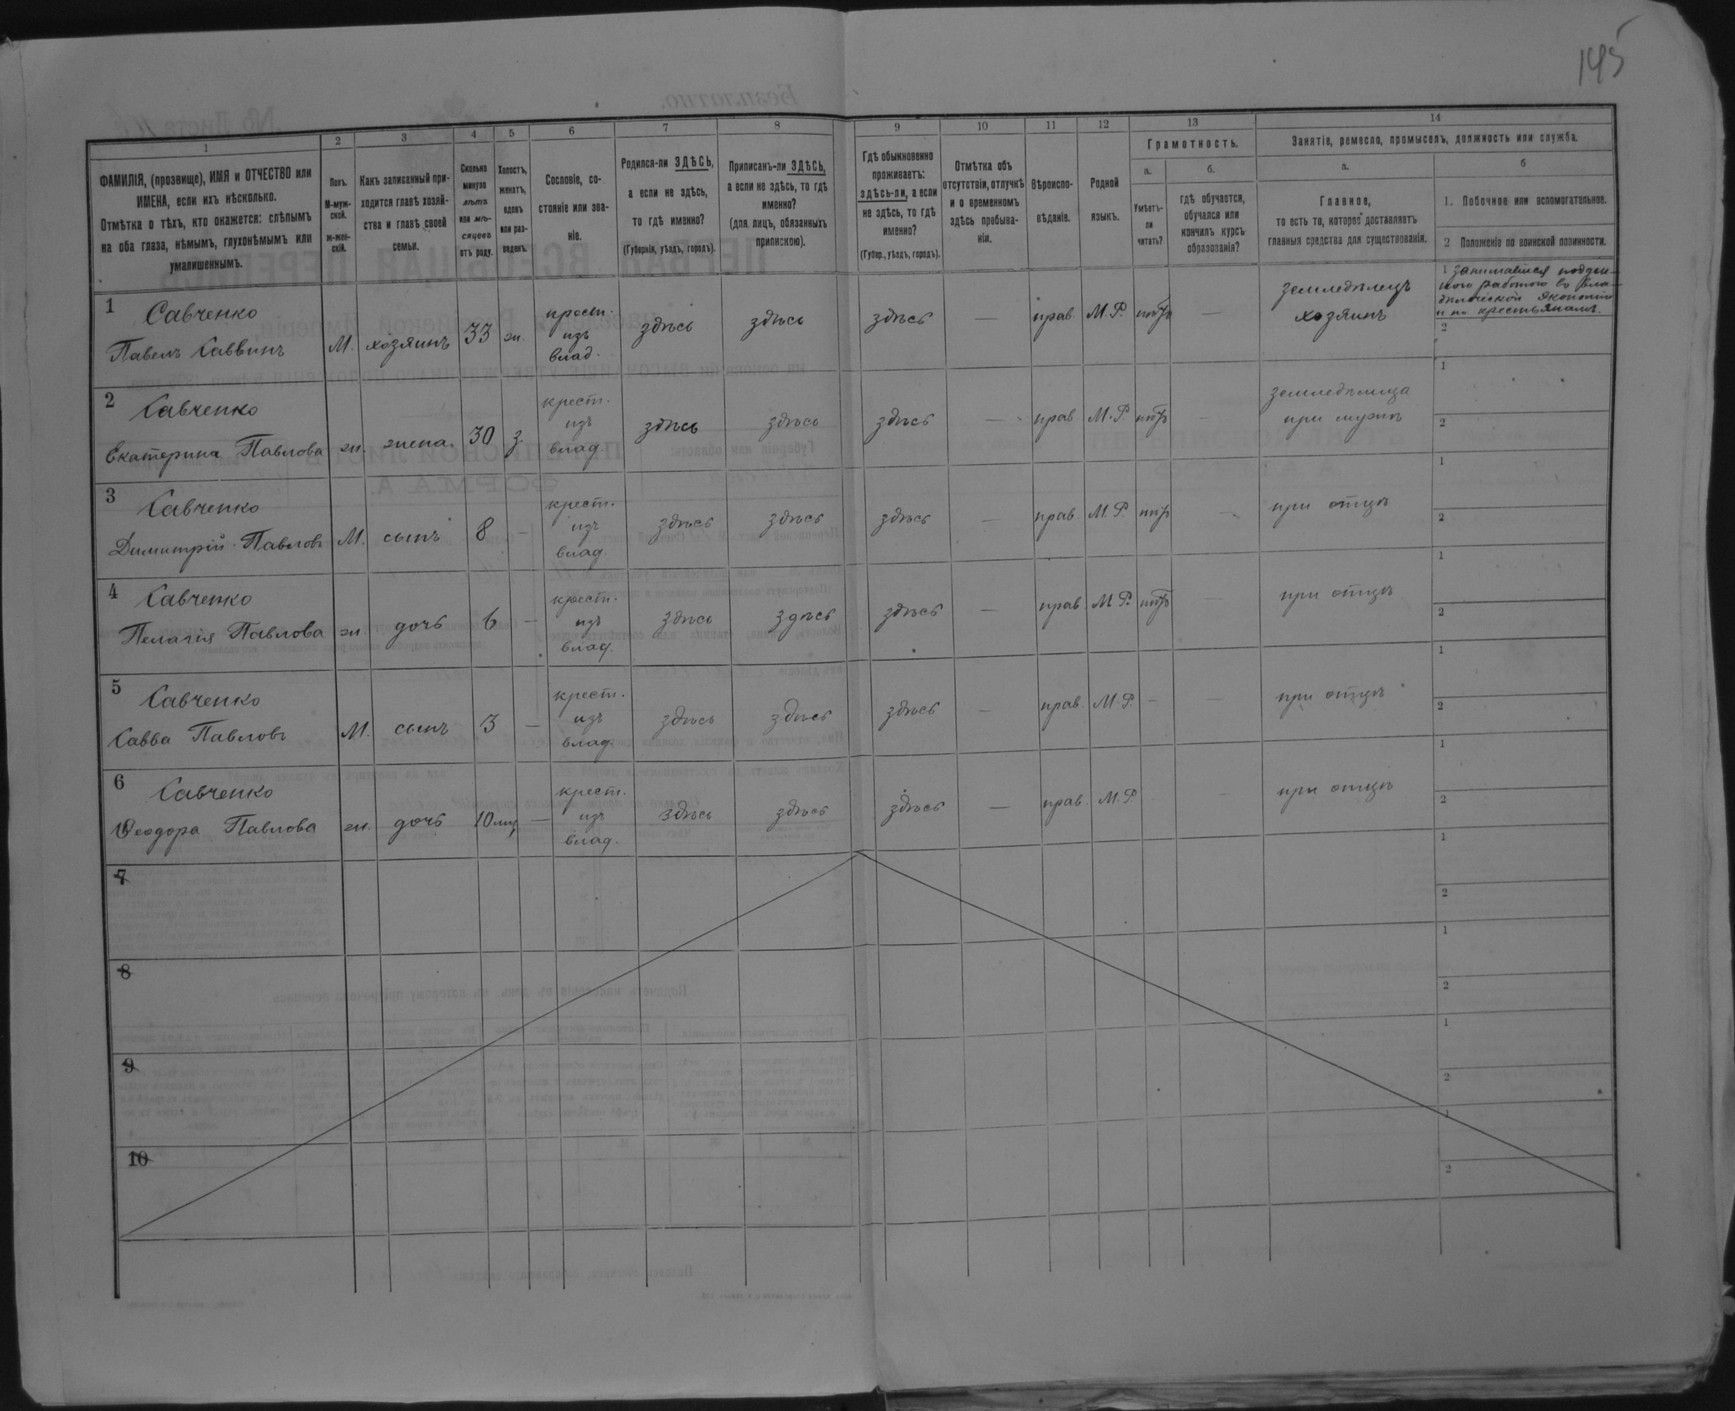 145
1
2
3
4
5
6
7
8
9
10
11
12
13
14
ФАМИЛІЯ, (прозвище), ИМЯ и ОТЧЕСТВО или
ИМЕНА, если ихъ нѣсколько.
Отмѣтка о тѣхъ, кто окажется: слѣпымъ
на оба глаза, нѣмымъ, глухонѣмымъ или
умалишеннымъ.
Полъ.
М-муж-
ской.
ж-жен-
скій.
Какъ записанный при-
ходится главѣ хозяй-
ства и главѣ своей
семьи.
Сколько
минуло
лѣтъ
или мѣ-
сяцевъ
отъ роду.
Холостъ,
женатъ,
вдовъ
или раз-
веденъ.
Сословіе, со-
стояніе или зва-
ніе.
Родился-ли ЗДѢСЬ,
а если не здѣсь,
то гдѣ именно?
(Губернія, уѣздъ, городъ).
Приписанъ-ли ЗДѢСЬ,
а если не здѣсь, то гдѣ
именно?
(для лицъ, обязанныхъ
припискою).
Гдѣ обыкновенно
проживаетъ:
здѣсь-ли, а если
не здѣсь, то гдѣ
именно?
(Губер., уѣздъ, городъ).
Отмѣтка объ
отсутствіи, отлучкѣ
и о временномъ
здѣсь пребыва-
ніи.
Вѣроиспо-
вѣданіе.
Родной
языкъ.
Грамотность.
а.
Умѣетъ-
ли
читать?
б.
гдѣ обучается,
обучался или
кончилъ курсъ
образованія?
Занятіе, ремесло, промыселъ, должность или служба.
а.
Главное,
то есть то, которое доставляетъ
главныя средства для существованія.
б
1. Побочное или вспомогательное.
2 Положеніе по воинской повинности.
1 Савченко
Павелъ Саввинъ М. хозяинъ 33 ж. крест. изъ влад. здѣсь здѣсь здѣсь — прав. М.Р. нѣтъ — земледѣлецъ хозяинъ
1 занимается поден-
ною работою во вла-
дѣльческой экономіи
и по крестьянамъ.
2
2 Савченко
Екатерина Павлова ж. жена. 30 з. крест. изъ влад. здѣсь здѣсь здѣсь — прав М.Р. нѣтъ — земледѣлица при мужѣ
1
2
3 Савченко
Димитрій Павловъ М. сынъ 8 — крест. изъ влад. здѣсь здѣсь здѣсь — прав. М.Р. нѣтъ — при отцѣ
1
2
4 Савченко
Пелагія Павлова ж дочь 6 — крест. изъ влад. здѣсь здѣсь здѣсь — прав. М.Р. нѣтъ — при отцѣ
1
2
5 Савченко
Савва Павловъ М. сынъ 3 — крест. изъ влад. здѣсь здѣсь здѣсь — прав. М.Р. - — при отцѣ
1
2
6 Савченко
Ѳеодора Павлова ж. дочь 10 мц — крест. изъ влад. здѣсь здѣсь здѣсь — прав. М.Р. — при отцѣ
1
2
7
1
2
8
1
2
9
1
2
10
1
2